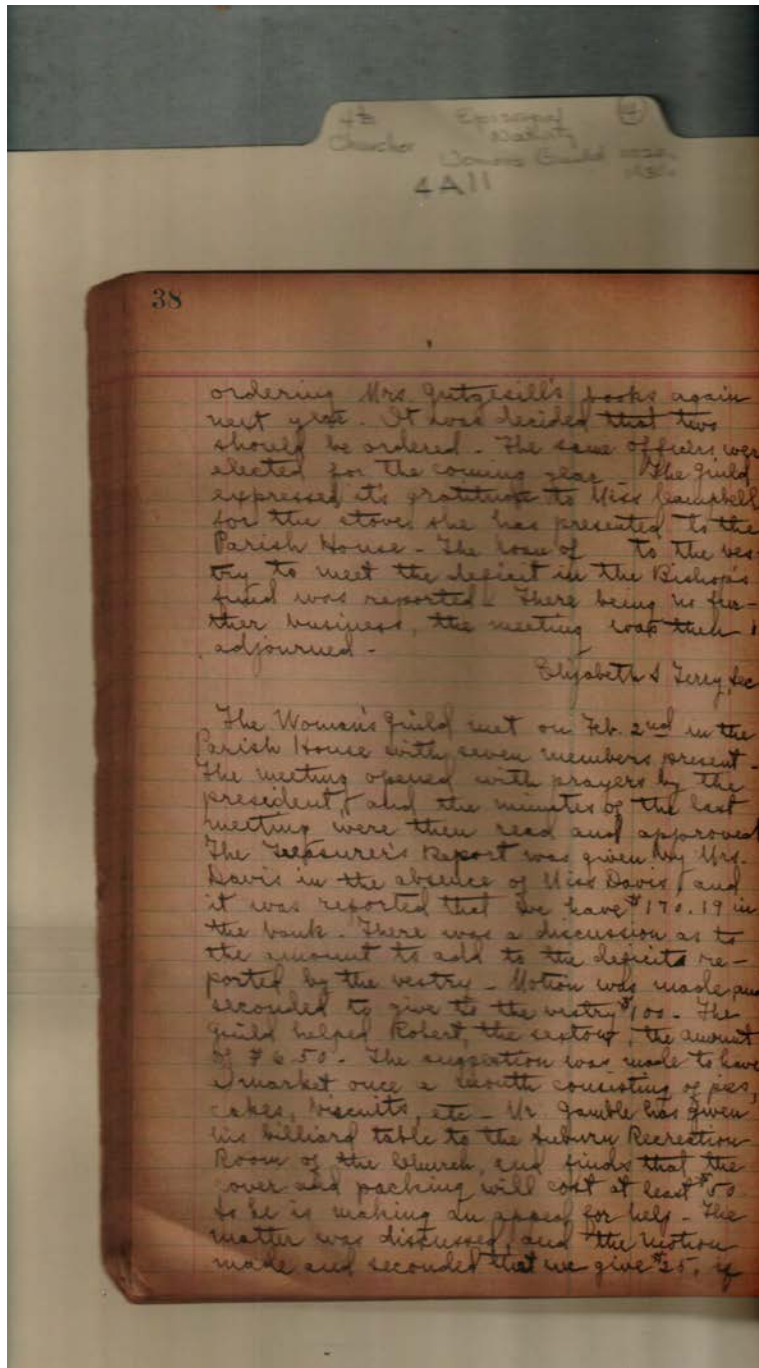 4th Episcopal 4
Churches Nativity
Womans Guild
4A11
38
ordering Mrs. books again
next year. It was decided that two
should be ordered - The same officers wer
elected for the coming year - The Guild
expressed it's gratitude to Miss Campbell
for the stove she has presented to the
Parish House - The loan of to the ves-
try to meet the deficit in the Bishop's
fund was reported - There being no fur-
ther business, the meeting was then
adjourned -
Elizabeth S Terry, Sec
The Woman's Guild met on Feb. 2nd in the
Parish House with seven members present -
The meeting opened with prayers by the
president, and the minutes of the last
meeting were then read and approved
The Treasurer's Report was given by Mrs.
Davis in the absence of Miss Davis, and
it was reported that we have $170.19 in
the bank. There was a discussion as to
the amount to add to the deficits re-
ported by the vestry - Motion was made and
seconded to give to the vestry $100 - The
Guild helped Robert, the sexton, the amount
of $6.50 - The suggestion was made to have
a market once a month consisting of pies,
cakes, biscuits, etc - Mr. Gamble has given
his billiard table to the Auburn Recreation
Room of the Church, and finds that the
cover and packing will cost at least $50
so he is making an appeal for help - The
matter was discussed, and the motion
made and seconded that we give $25, if